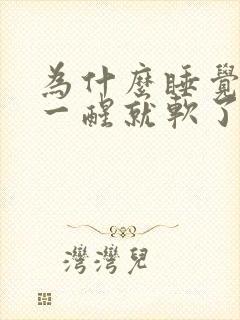 為什麼睡覺
一醒就軟了
灣灣兒